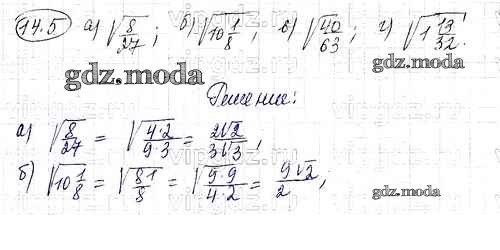 14.5 а) √8/27; б) √10 1/8; в) √40/63; г) √1 19/32.
gdz.moda
gdz.moda
Решение:
а) √8/27 = √4·2/9·3 = 2√2/3√3;
б) √10 1/8 = √81/8 = √9·9/4·2 = 9√2/2;
gdz.moda